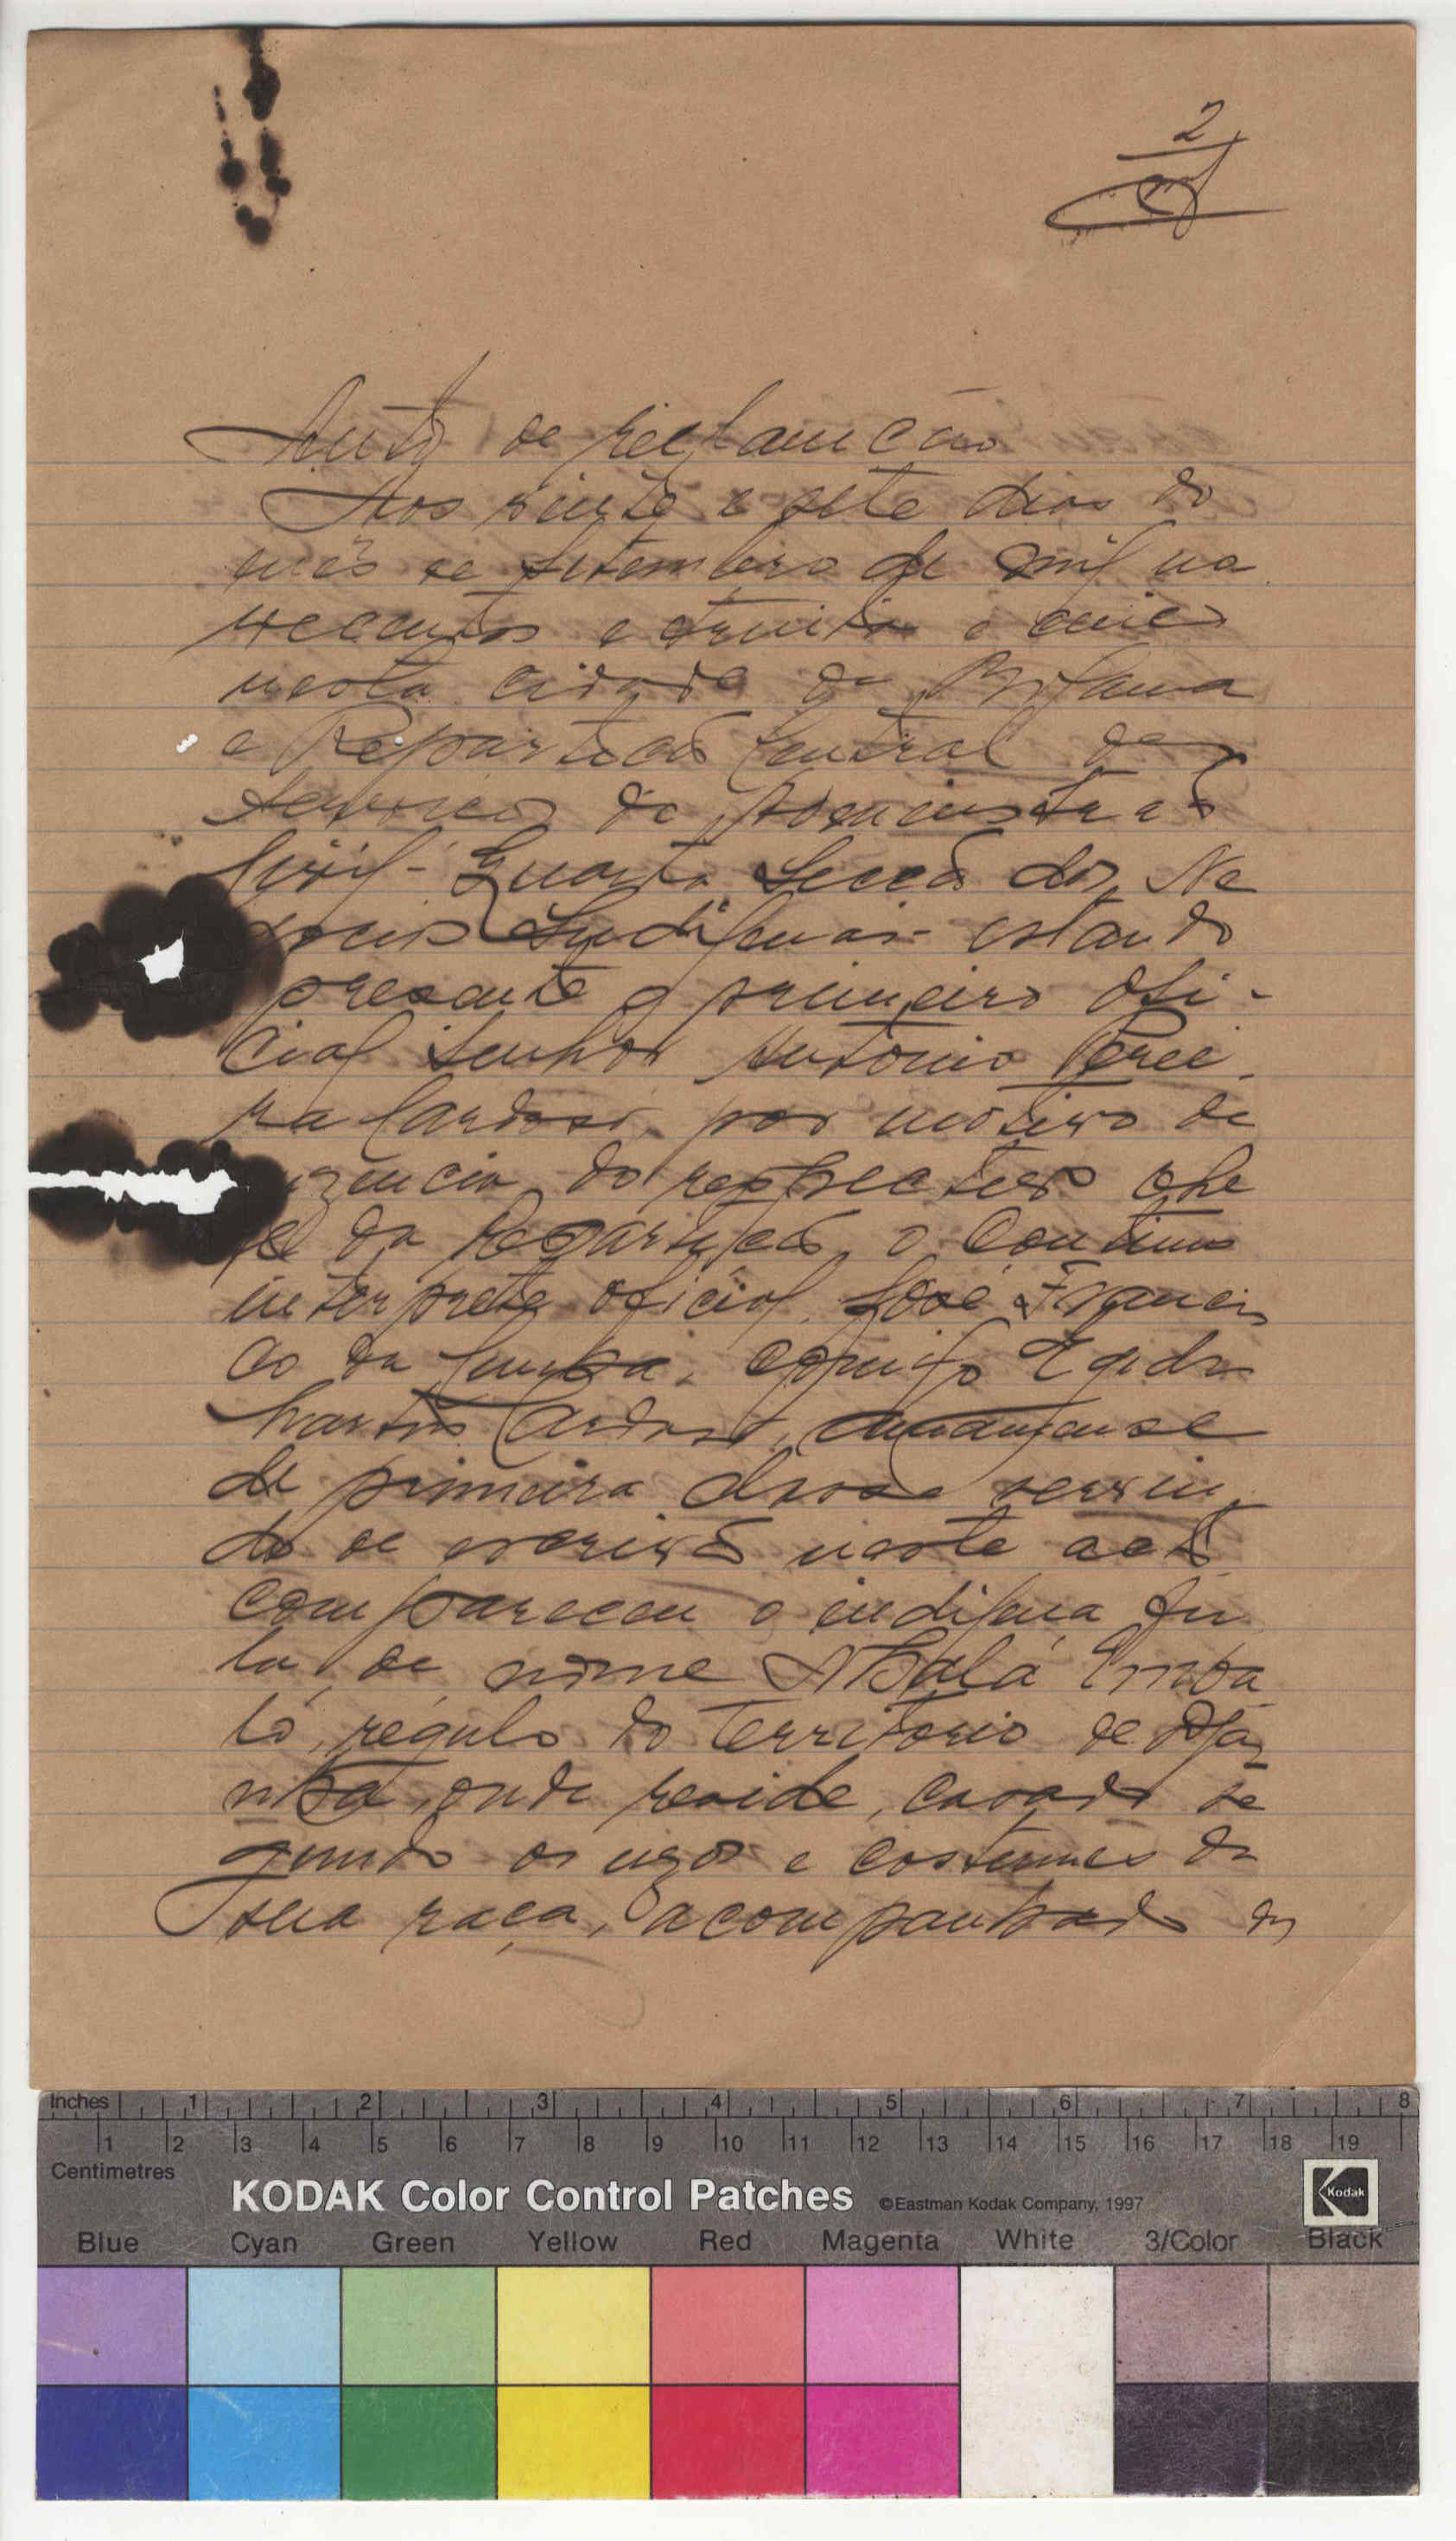 2
Auto de reclamação
Aos vinte e sete dias do
mês de Setembro de mil no
vecentos e trinta e cinco
nesta cidade de Bolama
e Repartição Central de
Serviços de Administração
Civil - Quarta Secção dos Ne
gocios Indigenas - estando
presente o primeiro ofi-
cial Senhor António Perei-
ra Cardoso, por motivo de
do respectivo che
fe da Repartição, o continuo
interprete oficial, José Francis
co da Cunha, comigo Egidio
Martins Cardoso, amanuense
de primeira classe servin-
do de escrivão neste acto
compareceu o indigena fu
la, de nome Abalá Emba
ló, régulo do territorio de
onde reside, casado se
gundo os usos e costumes da
sua raça, acompanhado do
Inches 1 2 3 4 5 6 7 8
1 2 3 4 5 6 7 8 9 10 11 12 13 14 15 16 17 18 19
Centimetres
KODAK Color Control Patches ©Eastman Kodak Company, 1997 Kodak
Blue Cyan Green Yellow Red Magenta White 3/Color Black